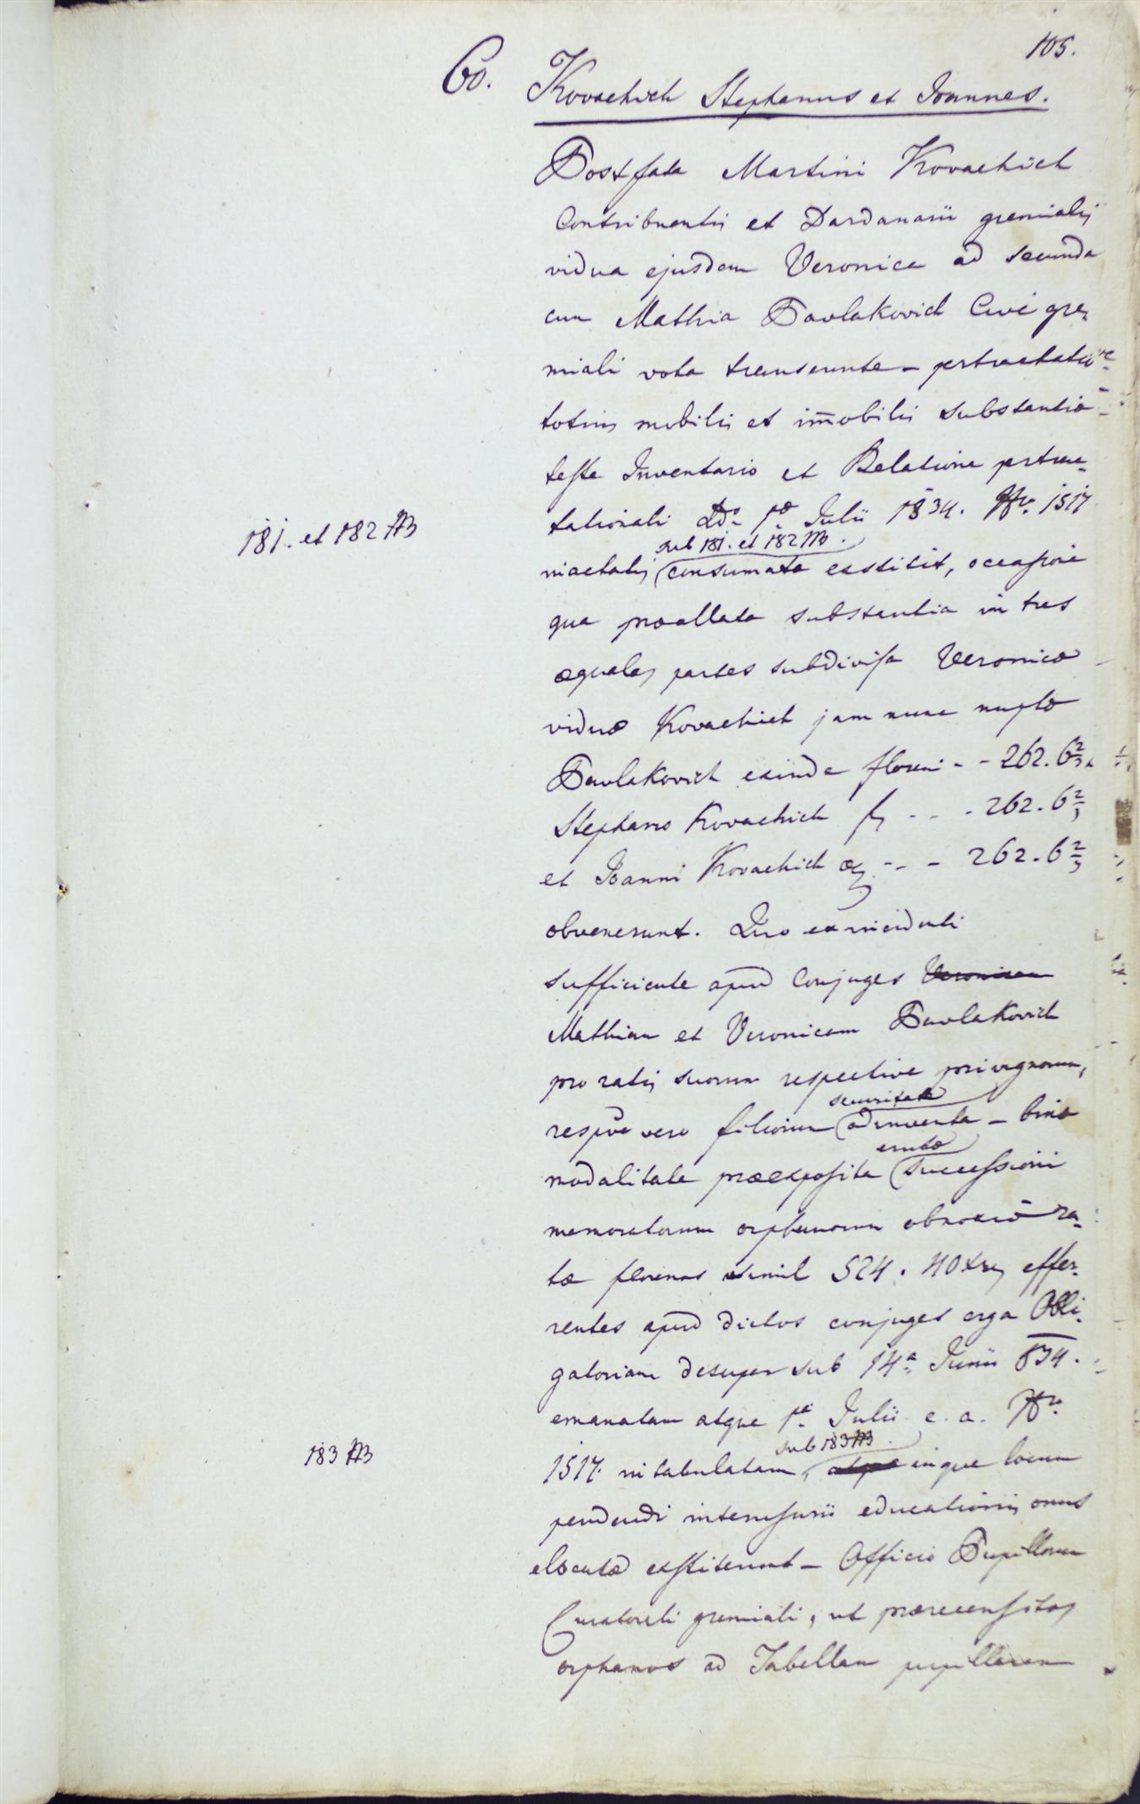 105.
60. Kovachich Stephanus et Joannes.
Post fata Martini Kovachich
Contribuentis et Dardanarii gremialis
vidua ejusdem Veronica ad secunda
cum Mathia Pavlakovich Cive gre-
miali vota transeunte – pertractatio
totius mobilis et im̅obilis substantiæ
teste Inventario et Relatione pertrac-
tationali Ddo 1a Julii 1834. Nro 1517
sub 181. et 182 AB.
181. et 182 AB
mactatis consumata exstitit, occasione
qua præallata substantia in tres
æquales partes subdivisa Veronicæ
viduæ Kovachich jam nunc nuptæ
Pavlakovich exinde floreni - - 262. 6 2/3
Stephano Kovachich f - - - 262. 6 2/3
et Joanni Kovachich æq - - - 262. 6 2/3
obvenerunt. Quo ex
sufficiente apud Conjuges Veronicam
Mathiam et Veronicam Pavlakovich
pro ratis suorum respective privignorum,
securitate
respve vero filiorum adinventa – binæ
erutæ
modalitate præexposita successioni
memoratorum orphanorum obnoxiæ ra-
tæ florenos simul 524. 40 xr effer-
rentes apud dictos conjuges erga Obli-
gatoriam desuper sub 14a Junii 834.
emanatam atque 1a Julii e. a. Nro
sub 183 AB.
183 AB
1517. intabulatam, atque inque locum
pendendi interusurii educationis onus
elocatæ exstiterunt – Officio Pupillorum
Curatorali gremiali, ut præcensitos
orphanos ad Tabellam pupillarem